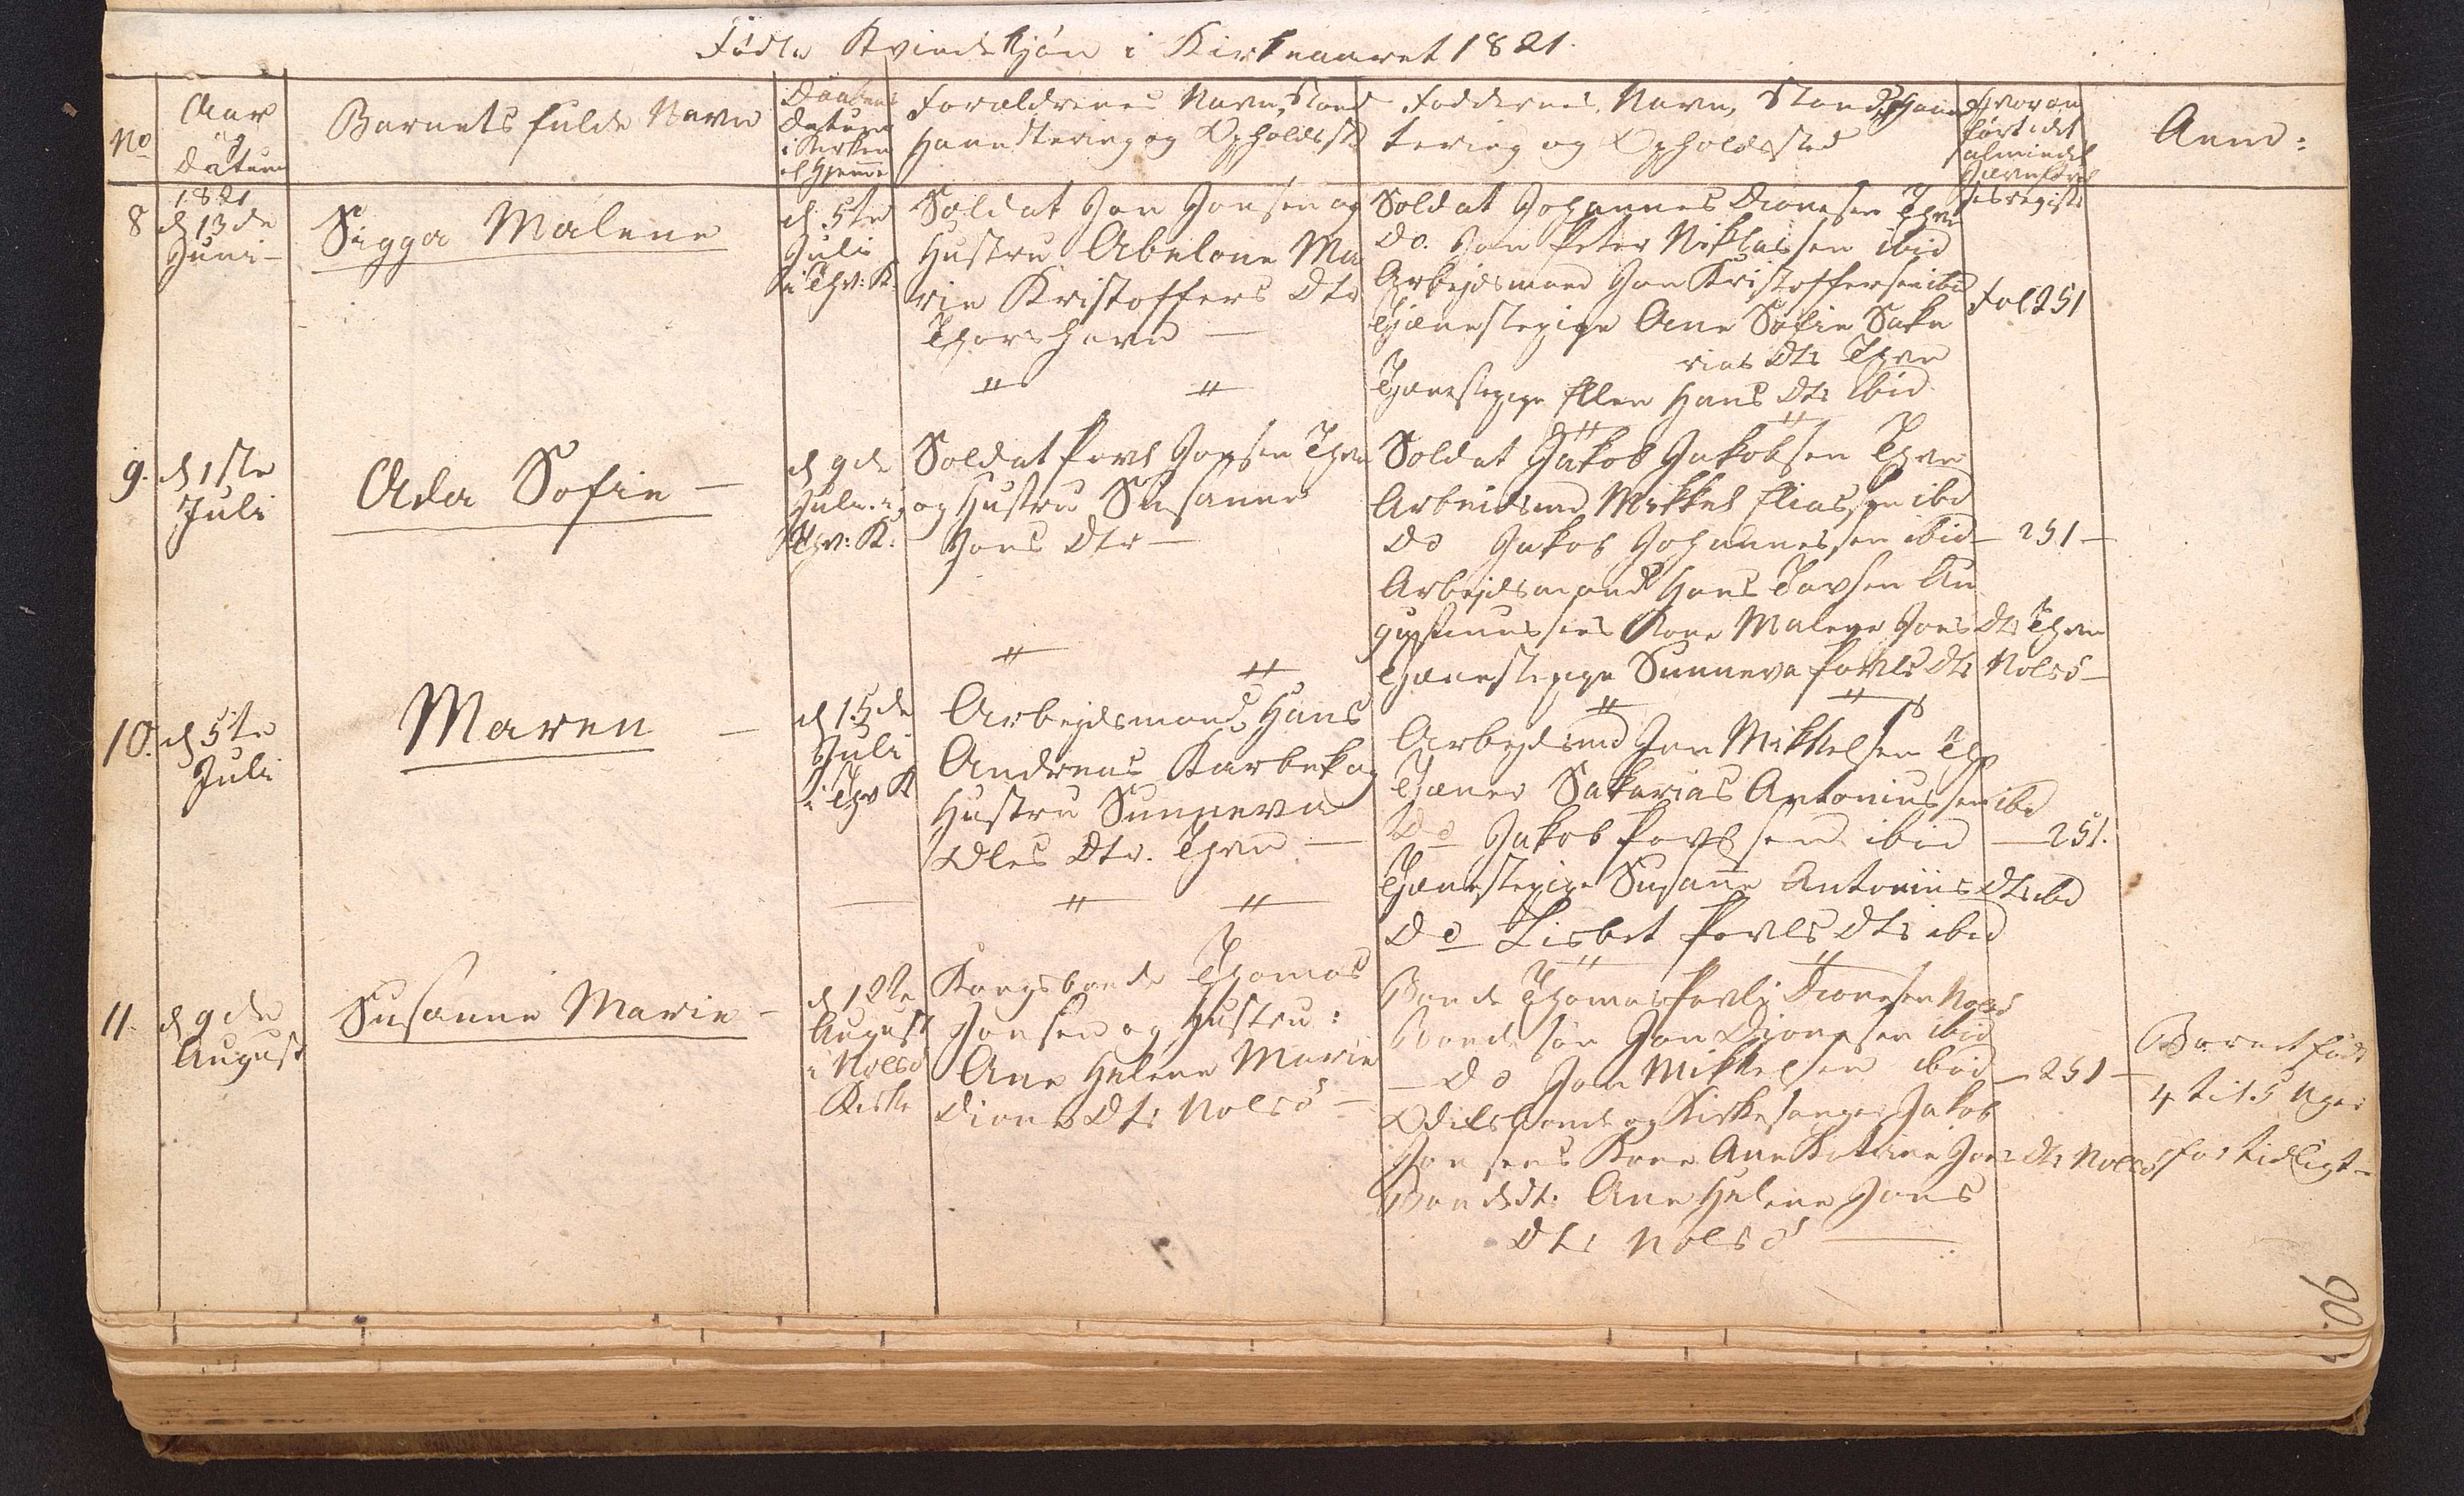 Födte Kvindekjön i Kirkeaaret 1821.
No
Aar
og
Datum
Barnets fulde Navn
Daabens
Datum
i Kirken
el Hjemme
Foraldrenes Navn, Stand
Haandtering og Opholdsst
Faddernes Navn, Stand, Haand
tering og Opholdssted
Hvor an
fört i det
almindel
Jævnförel
sesregist:
Anm:
8
1821
d 13de
Juni-
Sigga Malene
d 5te
Juli
i Thv: K.
Soldat Jon Jonsen og
Hustru Abelone Ma
rie Kristoffers Dtr
Thorshavn —
Soldat Johannes Dionesen Thvn
Do. Jon Peter Niklassen ibid
Arbejdsmand Jon Kristoffersen ibd
Tjenestepige Ane Sofie Saka
rias Dtr Thvn
Tjenestepige Ellen Hans Dtr ibid
Fol 251
9.
d 1ste
Juli
Ada Sofie —
d 9de
Juli i
Thv: K.
Soldat Povl Jonsen Thvn
og Hustru Susanne
Jons Dtr —
Soldat Jakob Jakobsen Thvn
Arbeidsmd Mikkel Eliassen ibd
Do Jakob Johannessen ibid
Arbejdsmand Hans Tavsen Au
gustinussens Kone Malene Joens Dtr Thvn
Tjenestepige Sunneva Povls Dtr Nolsö —
— 251 —
10.
d 5te
Juli
Maren —
d 15de
Juli
i Thv K
Arbejdsmand Hans
Andreas Karbek og
Hustru Sunneva
Oles Dtr. Thvn —
Arbejdsmd Jon Mikkelsen Th
Tjener Sakarias Antoniussen ibd
Do Jakob Povlsen ibid
Tjenestepige Susanne Antonius Dtr ibd
Do Lisbet Povls Dtr ibid
— 251.
11.
d 9de
August
Susanne Marie —
d 12te
August
i Nolsö
Kirke
Kongsbonde Thomas
Jonsen og Hustru:
Ane Helene Marie
Diones Dtr Nolsö —
Bonde Thomas Povli Dionesen Nolsö
Bondesön Jon Dionesen ibid
— Do Jon Mikkelsen ibid
Odelsbonde og Kirkesanger Jakob
Jonsens Kone Ane Katrine Joens Dtr Nolsö
Bondedt: Ane Helene Jons
Dtr Nolsö —
— 251 —
Barnet födt
4 til 5 Uger
for tidligt —
90.